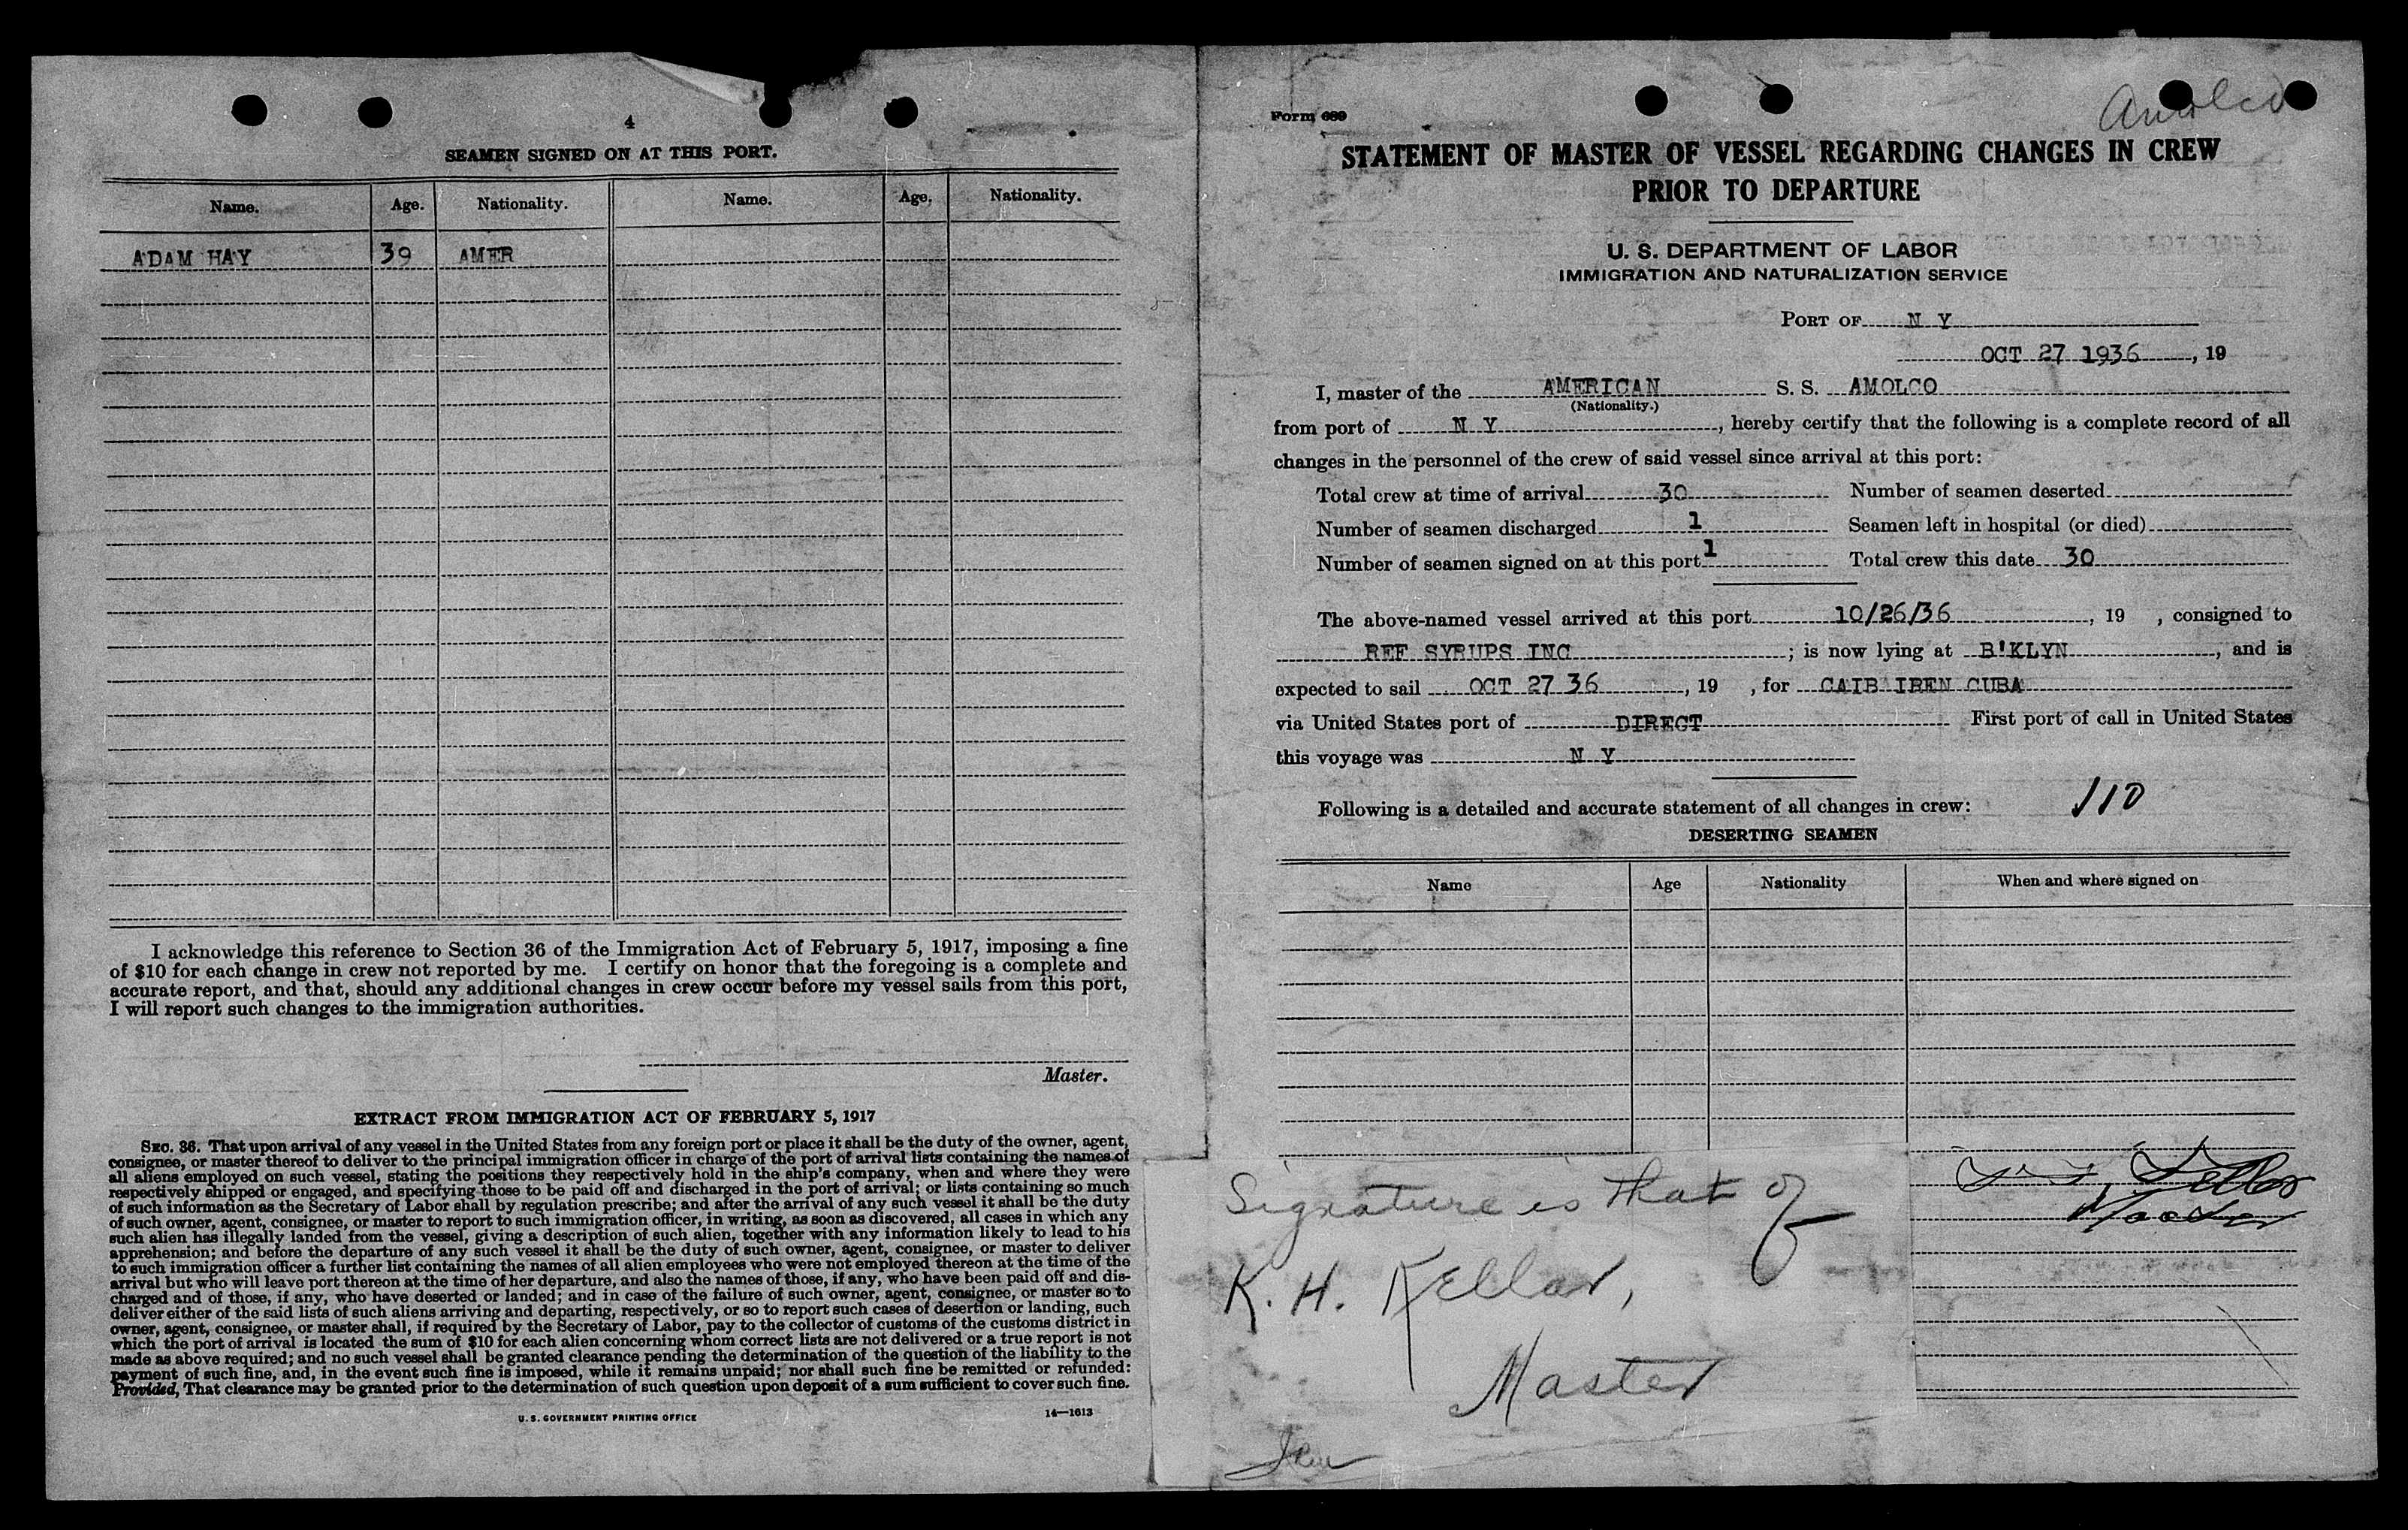 4
SEAMEN SIGNED ON AT THIS PORT.
Name. Age. Nationality. Name. Age. Nationality.
ADAM HAY 39 AMER
I acknowledge this reference to Section 36 of the Immigration Act of February 5, 1917, imposing a fine
of $10 for each change in crew not reported by me. I certify on honor that the foregoing is a complete and
accurate report, and that, should any additional changes in crew occur before my vessel sails from this port,
I will report such changes to the immigration authorities.
Master.
EXTRACT FROM IMMIGRATION ACT OF FEBRUARY 5, 1917
SEC. 36. That upon arrival of any vessel in the United States from any foreign port or place it shall be the duty of the owner, agent,
consignee, or master thereof to deliver to the principal immigration officer in charge of the port of arrival lists containing the names of
all aliens employed on such vessel, stating the positions they respectively hold in the ship's company, when and where they were
respectively shipped or engaged, and specifying those to be paid off and discharged in the port of arrival; or lists containing so much
of such information as the Secretary of Labor shall by regulation prescribe; and after the arrival of any such vessel it shall be the duty
of such owner, agent, consignee, or master to report to such immigration officer, in writing, as soon as discovered, all cases in which any
such alien has illegally landed from the vessel, giving a description of such alien, together with any information likely to lead to his
apprehension; and before the departure of any such vessel it shall be the duty of such owner, agent, consignee, or master to deliver
to such immigration officer a further list containing the names of all alien employees who were not employed thereon at the time of the
arrival but who will leave port thereon at the time of her departure, and also the names of those, if any, who have been paid off and dis-
charged and of those, if any, who have deserted or landed; and in case of the failure of such owner, agent, consignee, or master so to
deliver either of the said lists of such aliens arriving and departing, respectively, or so to report such cases of desertion or landing, such
owner, agent, consignee, or master shall, if required by the Secretary of Labor, pay to the collector of customs of the customs district in
which the port of arrival is located the sum of $10 for each alien concerning whom correct lists are not delivered or a true report is not
made as above required; and no such vessel shall be granted clearance pending the determination of the question of the liability to the
payment of such fine, and, in the event such fine is imposed, while it remains unpaid; nor shall such fine be remitted or refunded:
Provided, That clearance may be granted prior to the determination of such question upon deposit of a sum sufficient to cover such fine.
U. S. GOVERNMENT PRINTING OFFICE 14—1613
Amolco
Form 689
STATEMENT OF MASTER OF VESSEL REGARDING CHANGES IN CREW
PRIOR TO DEPARTURE
U. S. DEPARTMENT OF LABOR
IMMIGRATION AND NATURALIZATION SERVICE
PORT OF N Y
OCT 27 1936, 19
I, master of the AMERICAN S. S. AMOLCO
(Nationality.)
from port of N Y, hereby certify that the following is a complete record of all
changes in the personnel of the crew of said vessel since arrival at this port:
Total crew at time of arrival 30 Number of seamen deserted
Number of seamen discharged 1 Seamen left in hospital (or died)
Number of seamen signed on at this port 1 Total crew this date 30
The above-named vessel arrived at this port 10/26/36, 19 , consigned to
REF SYRUPS INC; is now lying at B'KLYN, and is
expected to sail OCT 27 36, 19 , for CAIB IREN CUBA
via United States port of DIRECT First port of call in United States
this voyage was N Y
Following is a detailed and accurate statement of all changes in crew: 110
DESERTING SEAMEN
Name Age Nationality When and where signed on
Signature is that of
K. H. Kellar,
Master